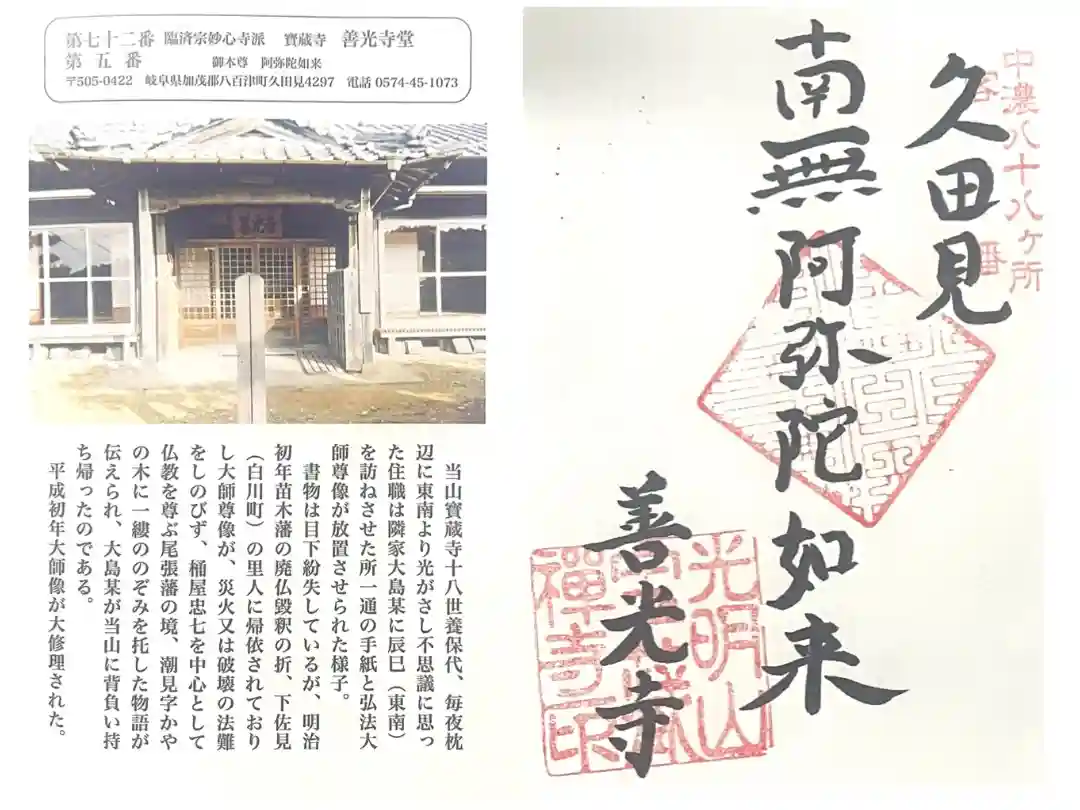 第七十二番 臨済宗妙心寺派 寳蔵寺 善光寺堂
第五番 御本尊 阿弥陀如来
〒505-0422 岐阜県加茂郡八百津町久田見4297 電話 0574-45-1073
当山寳蔵寺十八世養保代、毎夜枕
辺に東南より光がさし不思議に思っ
た住職は隣家大島某に辰巳（東南）
を訪ねさせた所一通の手紙と弘法大
師尊像が放置させられた様子。
書物は目下紛失しているが、明治
初年苗木藩の廃仏毀釈の折、下佐見
（白川町）の里人に帰依されており
し大師尊像が、災火又は破壊の法難
をしのびず、桶屋忠七を中心として
仏教を尊ぶ尾張藩の境、潮見字かや
の木に一縷ののぞみを托した物語が
伝えられ、大島某が当山に背負い持
ち帰ったのである。
平成初年大師像が大修理された。
中濃八十八ヶ所
番
久田見
南無阿弥陀如来
善光寺
光明山
禅寺印